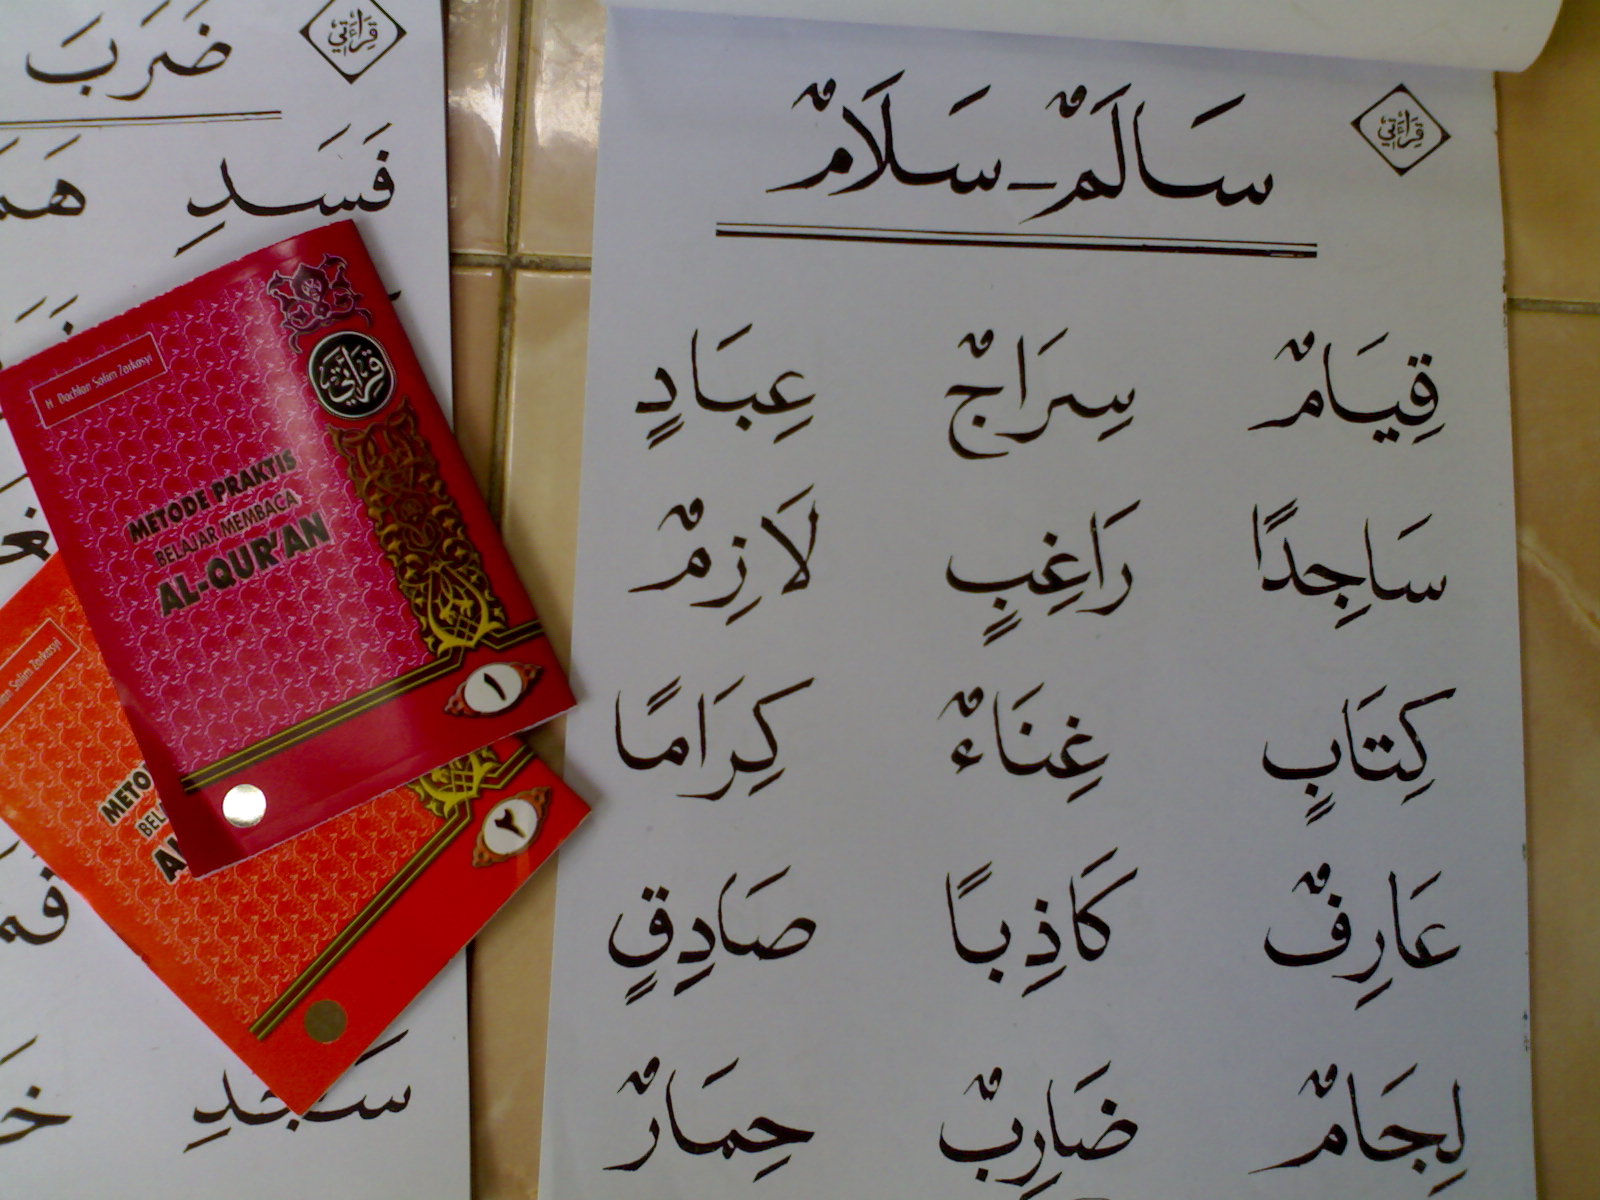 سَالَمٌ - سَلَامٌ
قِيَامٌ سِرَاجٌ عِبَادٍ
سَاجِدًا رَاغِبٍ لَازِمٌ
كِتَابٍ غِنَاءٌ كِرَامًا
عَارِفٌ كَاذِبًا صَادِقٍ
لِجَامٌ ضَارِبٌ حِمَارٌ
قِرَاءَتِي
ضَرَبَ
قِرَاءَتِي
فَسَدِ
سَجَدِ
H. Dachlan Salim Zarkasyi
قِرَاءَتِي
METODE PRAKTIS
BELAJAR MEMBACA
AL-QUR'AN
١
٢